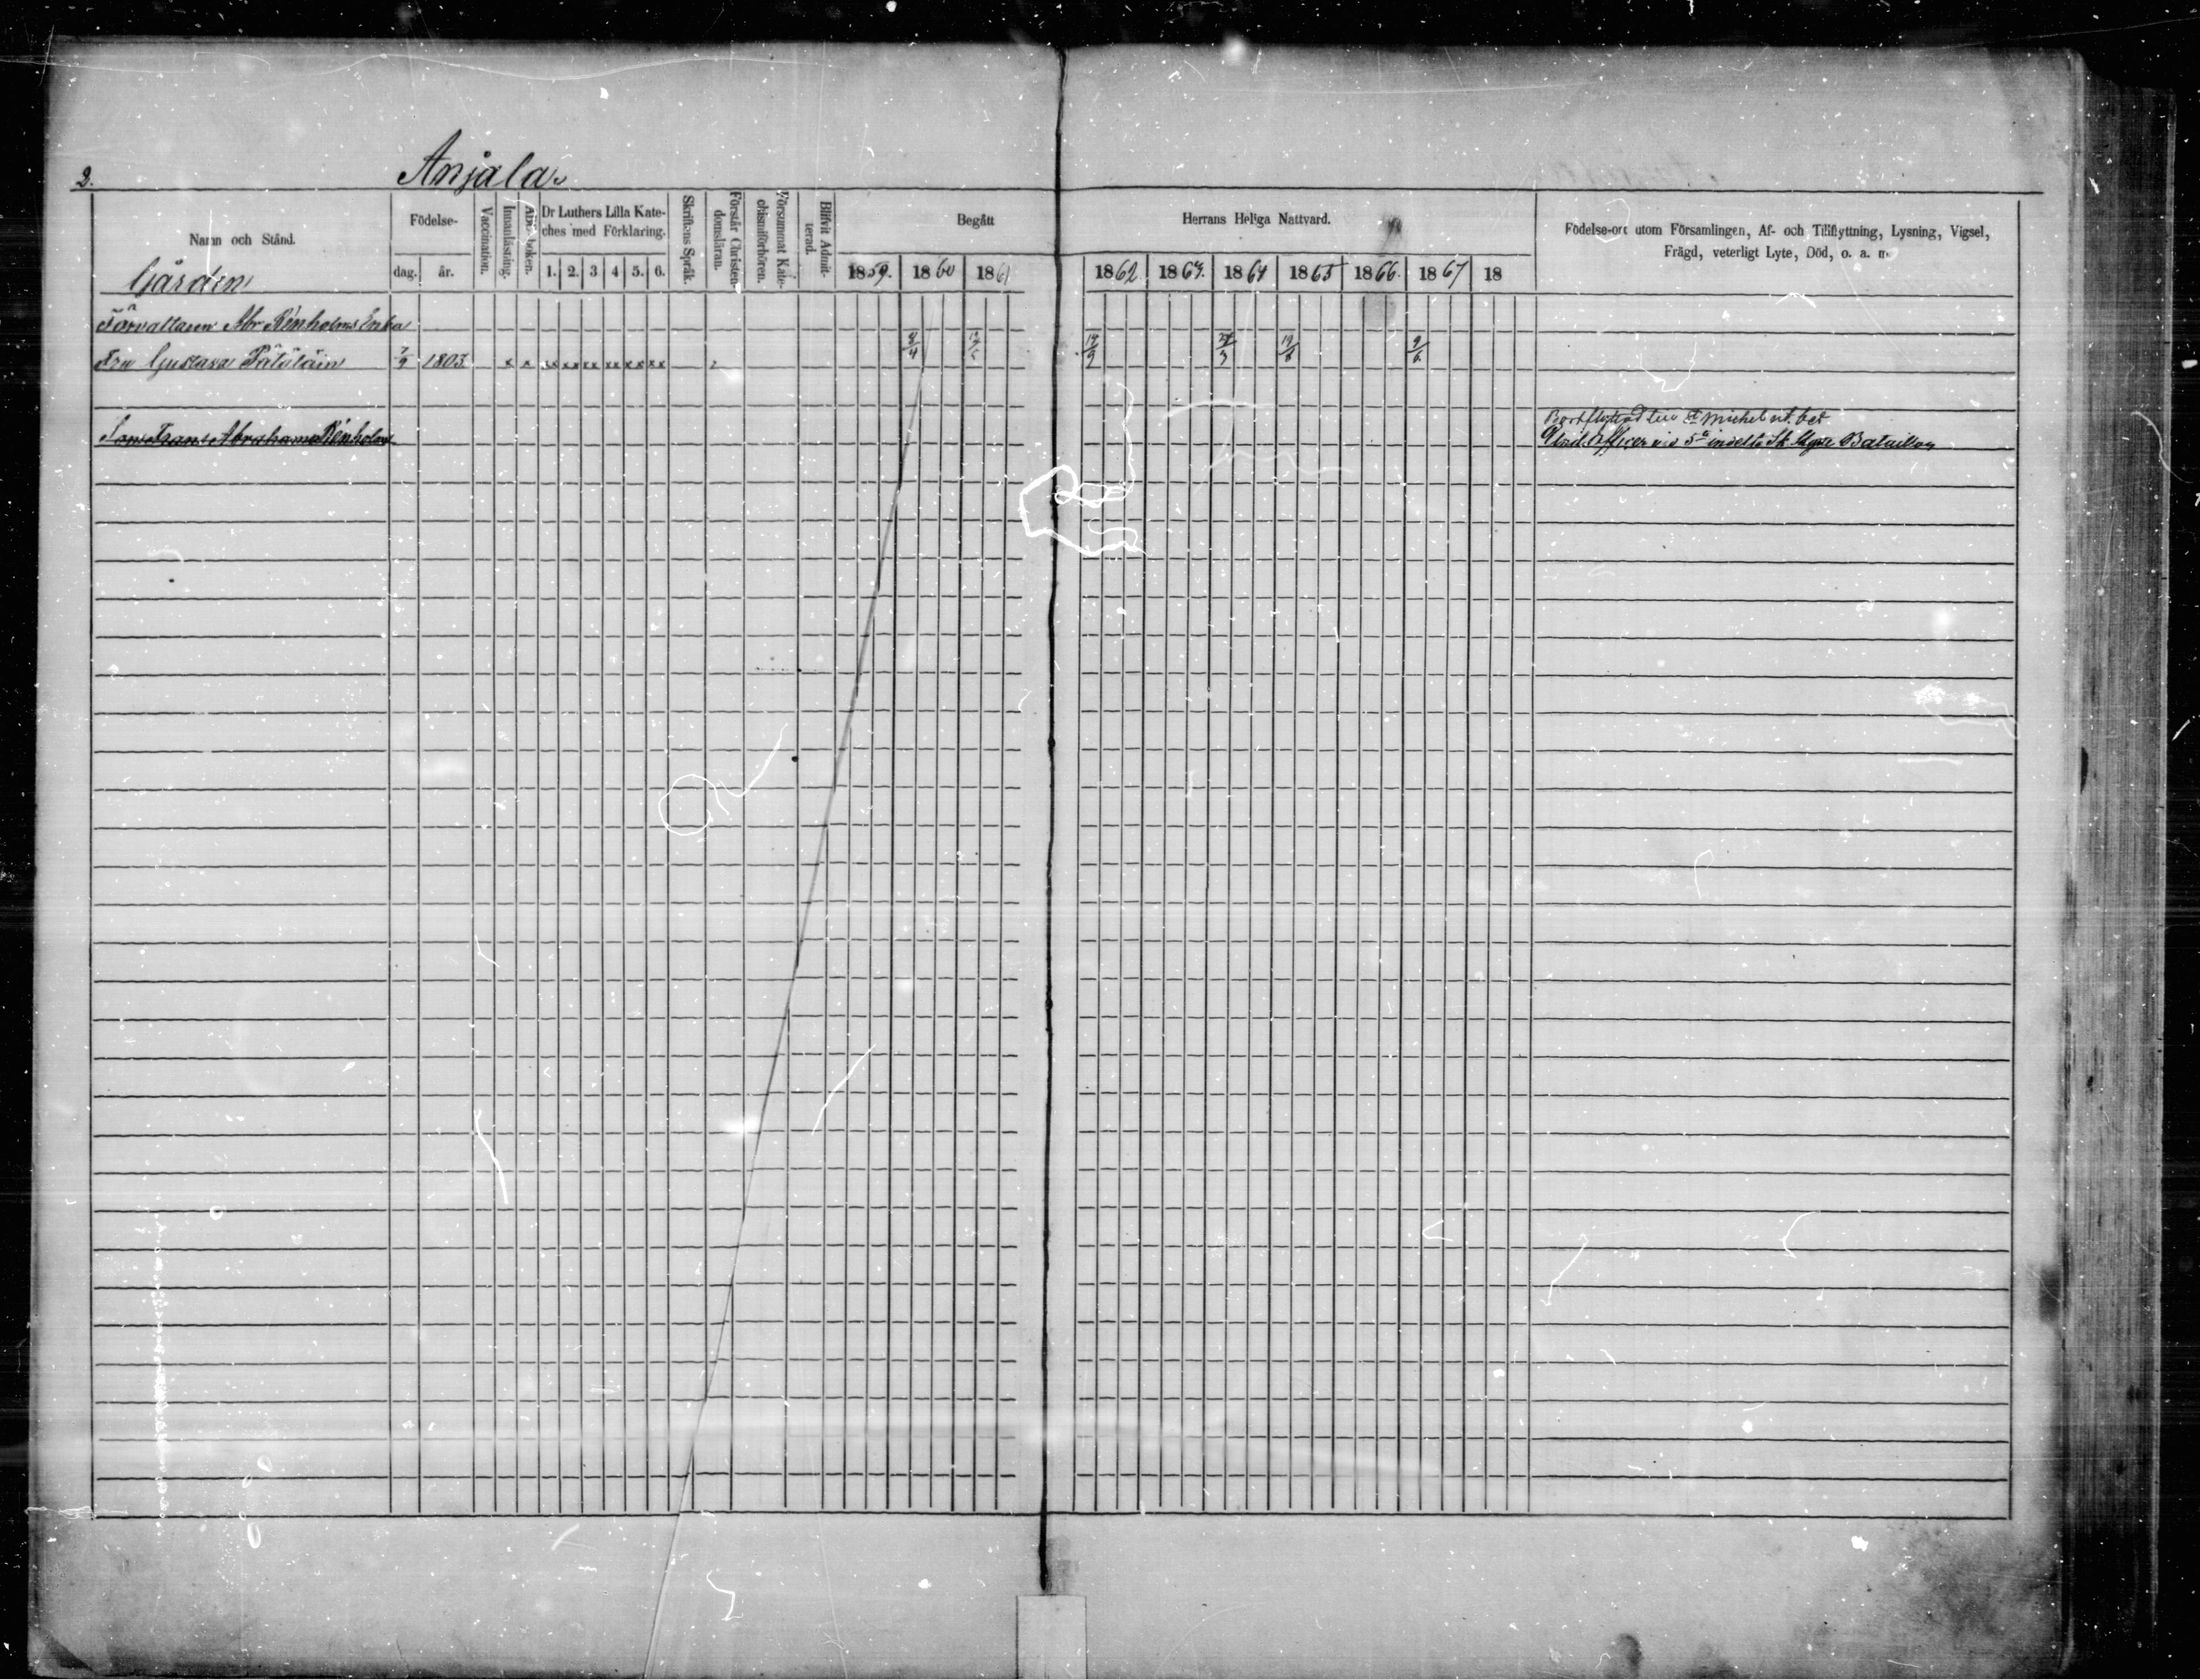 2.
Anjala
Namn och Stånd.
Gården
Födelse-
dag. år.
Vaccination.
Innanläsning.
Abc-boken.
Dr Luthers Lilla Kate-
ches med Förklaring.
1. 2. 3 4 5. 6.
Skriftens Språk.
Förstår Christen-
domsläran.
Försummat Kate-
chismiförhören.
Blifvit Admit-
terad.
Begått
1859. 1860 1861
Herrans Heliga Nattvard.
1862. 1863. 1864 1865 1866. 1867 18
Födelse-ort utom Församlingen, Af- och Tillflyttning, Lysning, Vigsel,
Frägd, veterligt Lyte, Död, o. a. m.
Förvaltaren Abr Renholms Enka
Fru Gustava 7/9 1803 x x xx xx xx xx xx xx 8/4 19/9 9/6
Son Frans Abraham Renholm
Bortflyttad till St Michel
Underofficer vid 5te indelta Bataillon